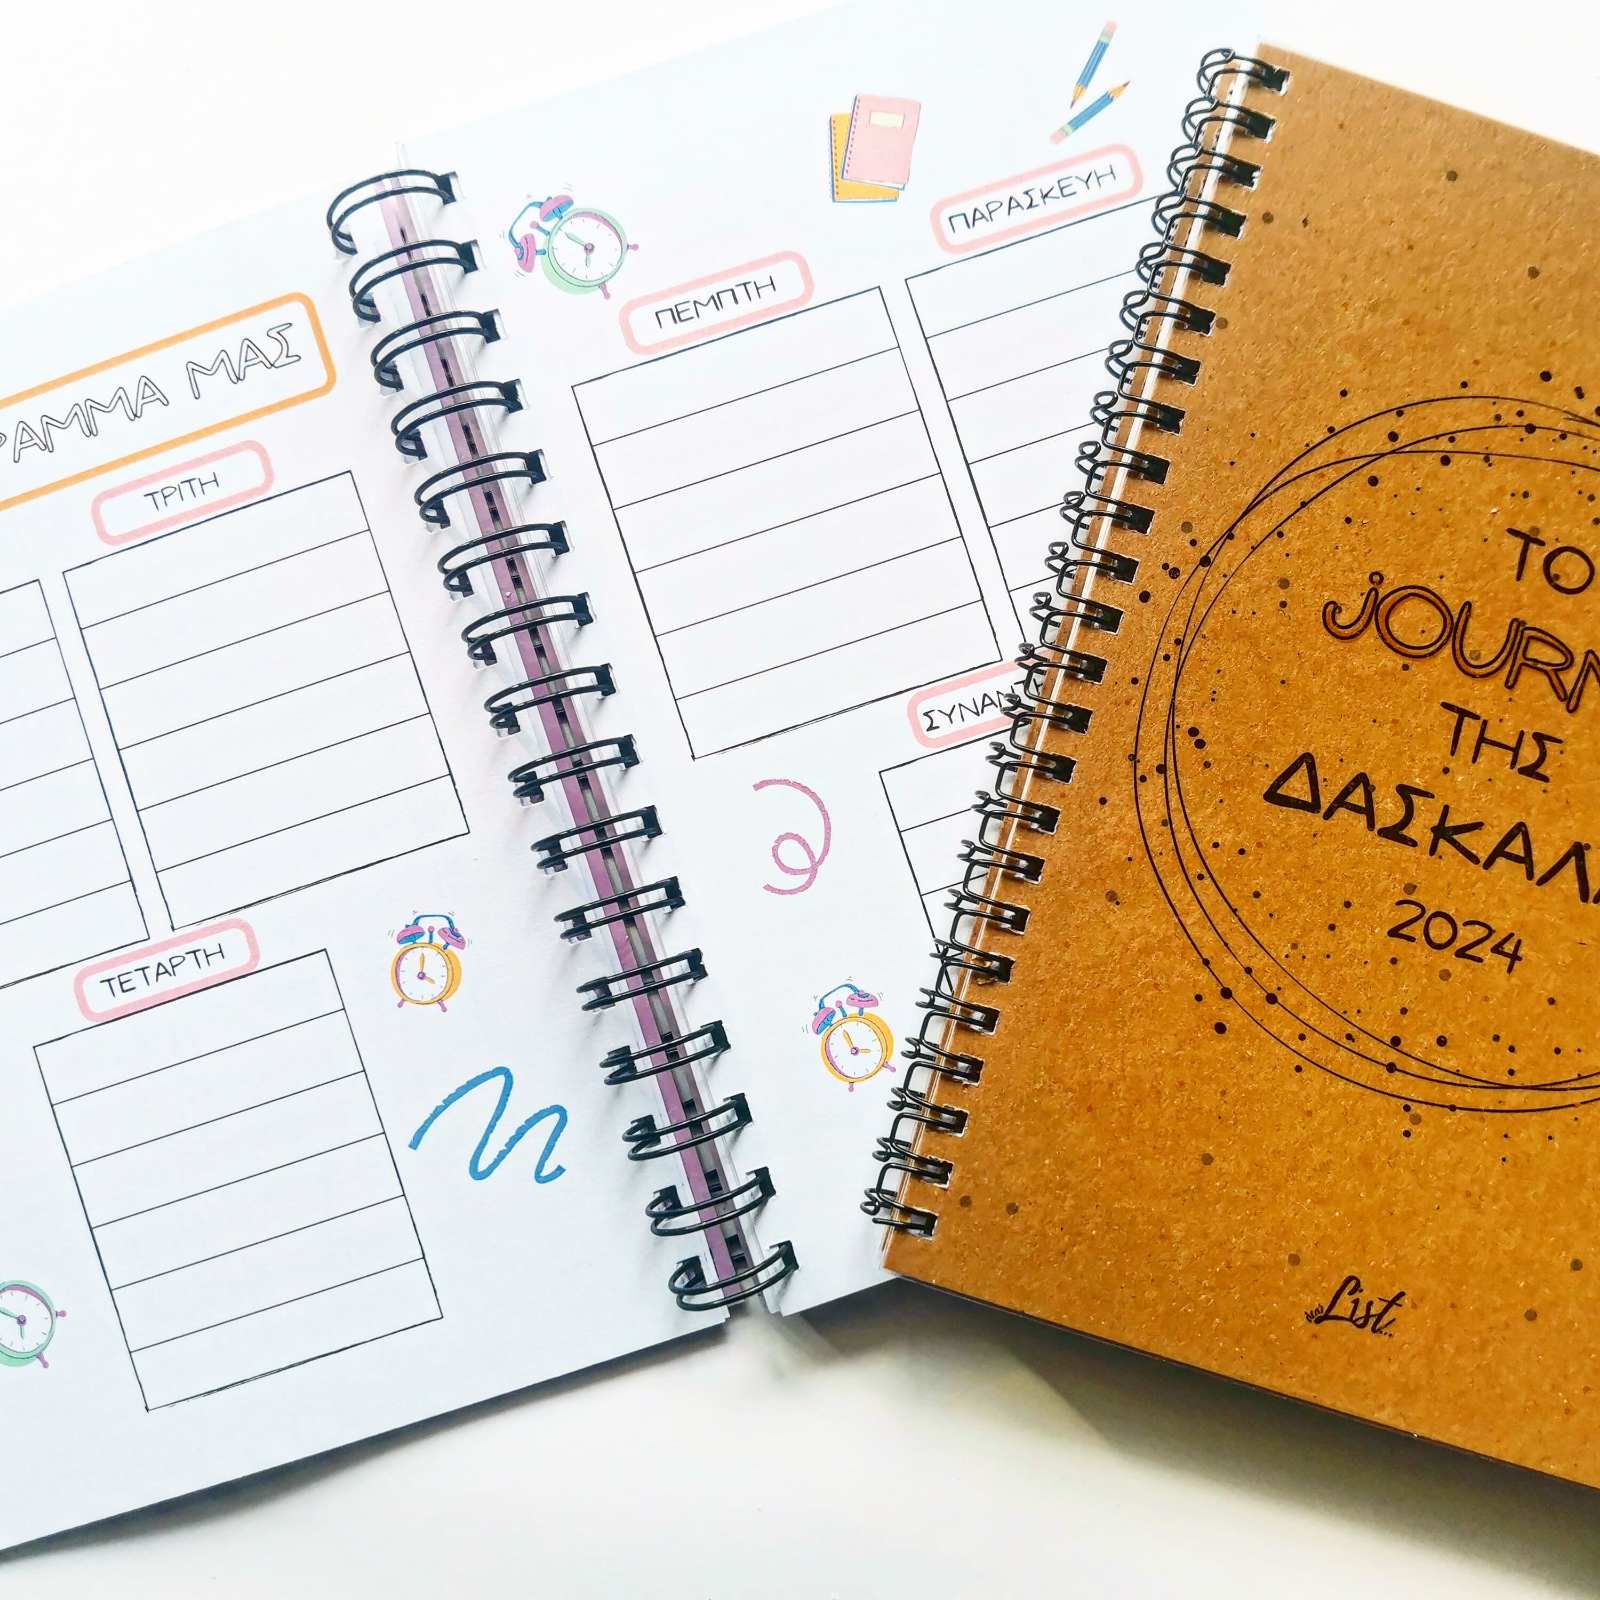 ΡΑΜΜΑ ΜΑΣ
ΤΡΙΤΗ
ΤΕΤΑΡΤΗ
ΠΕΜΠΤΗ
ΠΑΡΑΣΚΕΥΗ
ΣΥΝΑΝ
ΤΟ
JOURN
ΤΗΣ
ΔΑΣΚΑΛ
2024
List...